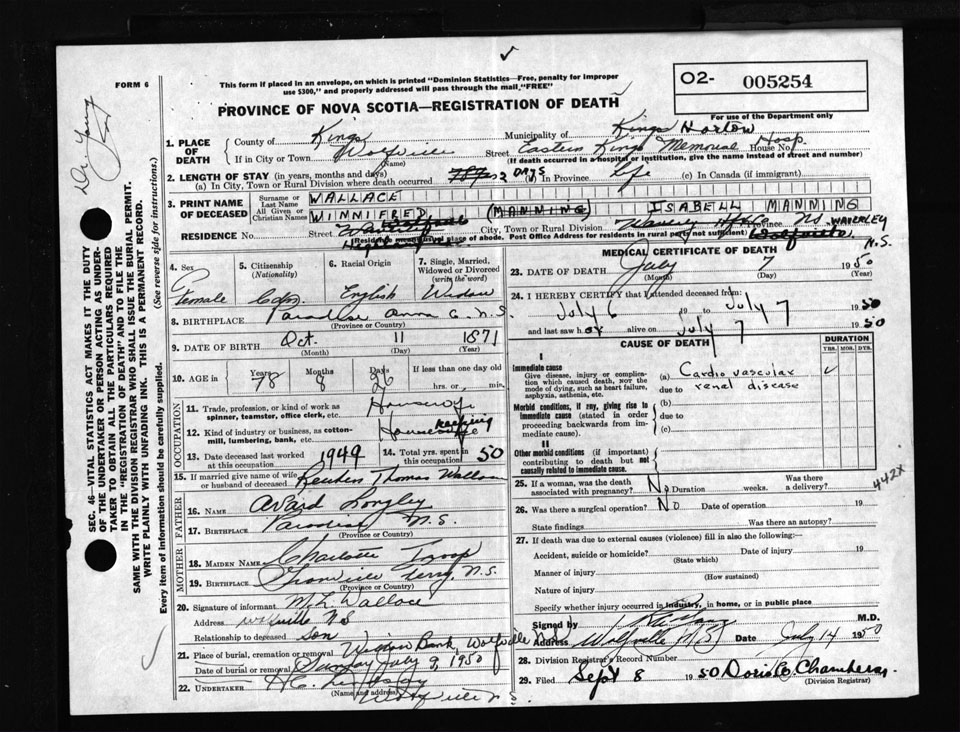 FORM 6
This form if placed in an envelope, on which is printed "Dominion Statistics—Free, penalty for improper
use $300," and properly addressed will pass through the mail, "FREE"
O2- 005254
For use of the Department only
PROVINCE OF NOVA SCOTIA—REGISTRATION OF DEATH
Dr Young
SEC. 46—VITAL STATISTICS ACT MAKES IT THE DUTY
OF THE UNDERTAKER OR PERSON ACTING AS UNDER-
TAKER TO OBTAIN ALL THE PARTICULARS REQUIRED
IN THE "REGISTRATION OF DEATH" AND TO FILE THE
SAME WITH THE DIVISION REGISTRAR WHO SHALL ISSUE THE BURIAL PERMIT.
WRITE PLAINLY WITH UNFADING INK. THIS IS A PERMANENT RECORD.
Every item of information should be carefully supplied. (See reverse side for instructions.)
1. PLACE OF DEATH
County of Kings Municipality of Kings Horton
If in City or Town Wolfville (Name) Street Eastern Kings Memorial Hosp House No.
(If death occurred in a hospital or institution, give the name instead of street and number)
2. LENGTH OF STAY (in years, months and days)
(a) In City, Town or Rural Division where death occurred 2 DAYS (b) In Province Life (c) In Canada (if immigrant)
3. PRINT NAME OF DECEASED
Surname or Last Name WALLACE
All Given or Christian Names WINNIFRED (MANNING) ISABELL MANNING
RESIDENCE No. Street City, Town or Rural Division Waverly Hfx Co Province NS WAVERLEY N.S.
(Residence means usual place of abode. Post Office Address for residents in rural parts not sufficient)
4. Sex Female
5. Citizenship (Nationality) Cdn.
6. Racial Origin English
7. Single, Married, Widowed or Divorced (write the word) Widow
8. BIRTHPLACE Paradise Anna Co. N.S.
(Province or Country)
9. DATE OF BIRTH Oct. 11 1871
(Month) (Day) (Year)
10. AGE in Years 78 Months 8 Days 26 If less than one day old hrs. or min.
OCCUPATION
11. Trade, profession, or kind of work as spinner, teamster, office clerk, etc. Housewife
12. Kind of industry or business, as cotton-mill, lumbering, bank, etc. Housekeeping
13. Date deceased last worked at this occupation 1949
14. Total yrs. spent in this occupation 50
15. If married give name of wife or husband of deceased Reuben Thomas Wallace
FATHER
16. NAME Avard Longley
17. BIRTHPLACE Paradise N.S.
(Province or Country)
MOTHER
18. MAIDEN NAME Charlotte Troop
19. BIRTHPLACE Granville Ferry, N.S.
(Province or Country)
20. Signature of informant M. L. Wallace
Address Wolfville N S
Relationship to deceased Son
21. Place of burial, cremation or removal Willow Bank, Wolfville N.S.
Date of burial or removal Sunday July 9, 1950
22. UNDERTAKER
(Name and address)
Wolfville N.S.
MEDICAL CERTIFICATE OF DEATH
23. DATE OF DEATH July 7 1950
(Month) (Day) (Year)
24. I HEREBY CERTIFY that I attended deceased from:
July 6 to July 7 1950
and last saw her alive on July 7 1950
CAUSE OF DEATH
DURATION
YRS. MOS. DYS.
I
Immediate cause
Give disease, injury or complication which caused death, not the mode of dying, such as heart failure, asphyxia, asthenia, etc.
(a) Cardio vascular
due to renal disease
Morbid conditions, if any, giving rise to immediate cause (stated in order proceeding backwards from immediate cause).
(b)
due to
(c)
II
Other morbid conditions (if important) contributing to death but not causally related to immediate cause.
442X
25. If a woman, was the death associated with pregnancy? No Duration weeks. Was there a delivery?
26. Was there a surgical operation? No Date of operation 19
State findings Was there an autopsy?
27. If death was due to external causes (violence) fill in also the following:—
Accident, suicide or homicide? Date of injury 19
(State which)
Manner of injury
(How sustained)
Nature of injury
Specify whether injury occurred in industry, in home, or in public place
Signed by M.D.
Address Wolfville N.S. Date July 14 1950
28. Division Registrar's Record Number
29. Filed Sept 8 1950 Doris C. Chambers,
(Division Registrar)